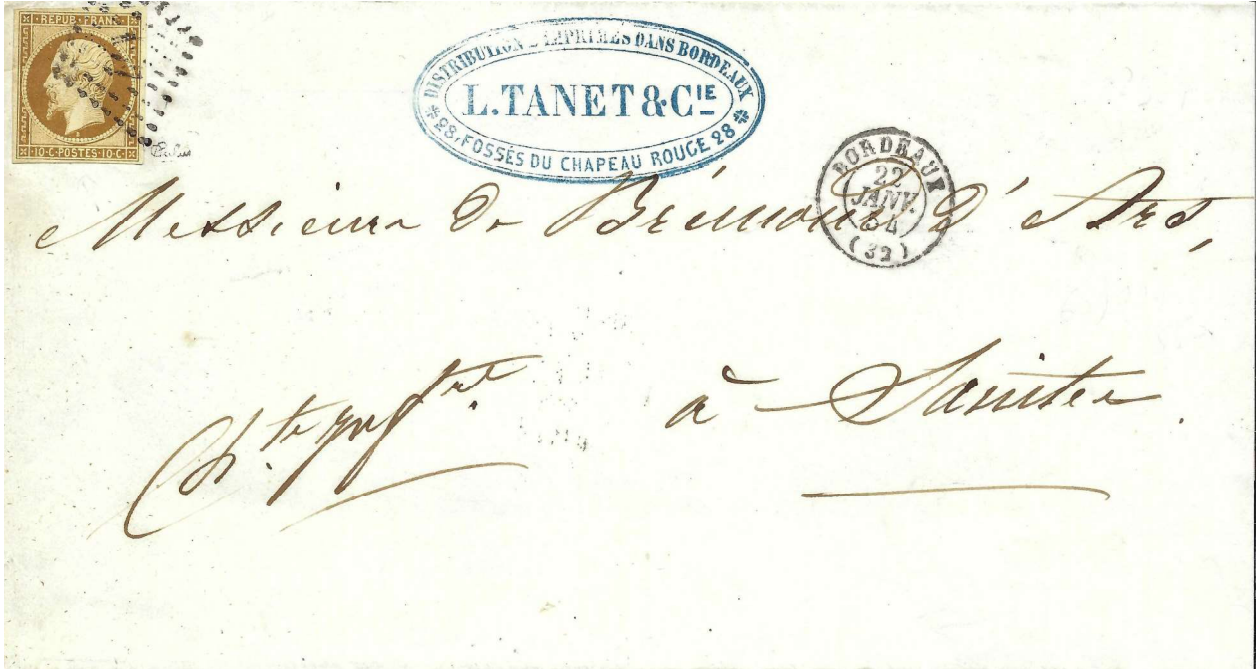 REPUB. FRANC.
10·C·POSTES·10·C
DISTRIBUTION D'IMPRIMÉS DANS BORDEAUX
L. TANET & CIE
28, FOSSÉS DU CHAPEAU ROUGE 28
BORDEAUX
22
JANV.
54
(32)
Messieurs de Brémond d'Ars,
à Saintes